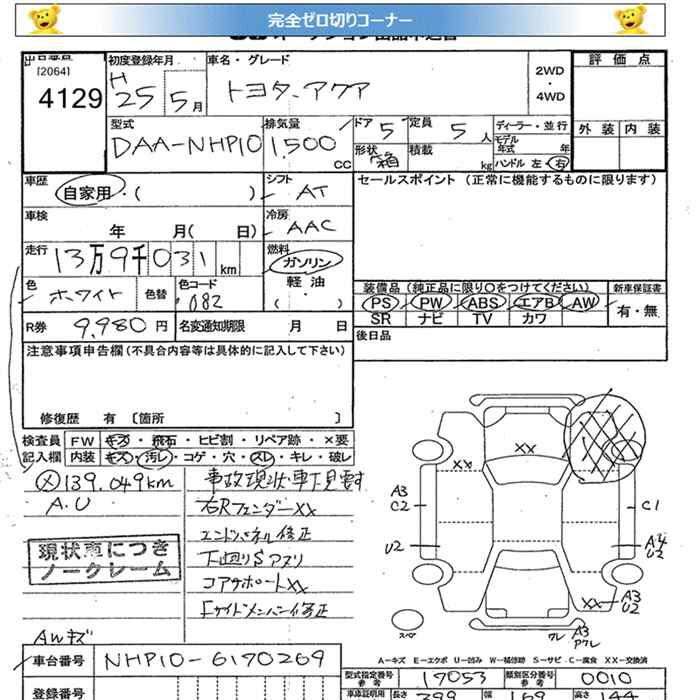 完全ゼロ切りコーナー
[2064]
4129
初度登録年月
H 25 5月
車名・グレード
トヨタ アクア
2WD
・
4WD
評価点
外装 内装
型式
DAA-NHP10
排気量
1,500 CC
ドア 5
定員 5 人
形状 箱
積載 kg
ディーラー・並行
モデル年式 年
ハンドル 左・右
車歴
自家用・( )
シフト
AT
セールスポイント (正常に機能するものに限ります)
車検
年 月( 日)
冷房
AAC
走行
13万9千031km
燃料
ガソリン
軽油
・
( )
色
ホワイト
色替
色コード
082
装備品 (純正品に限り○をつけてください)
新車保証書
PS PW ABS エアB AW
SR ナビ TV カワ
有・無
R券 9,980 円
名変通知期限 月 日
後日品
注意事項申告欄 (不具合内容等は具体的に記入して下さい)
修復歴 有 [箇所 ]
検査員
記入欄
FW キズ・飛石・ヒビ割・リペア跡・×要
内装 キズ・汚レ・コゲ・穴・スレ・キレ・破レ
139.049km
A.U
現状車につき
ノークレーム
AWキズ
事故現状車下見要
右RフェンダーXX
エンドパネル修正
下廻りSアリ
コアサポートXX
Fサイドメンバー修正
XX
XX
A3
C2
C1
U2
U2
XX
A3
U2
スペア
ワレ
A3
Aワレ
A-キズ E-エクボ U-凹み W-補修跡 S-サビ C-腐食 XX-交換済
車台番号
NHP10-6170269
登録番号
型式指定番号
参考
17053
類別区分番号
参考
0010
車庫証明用
長さ 399
幅 169
高さ 144